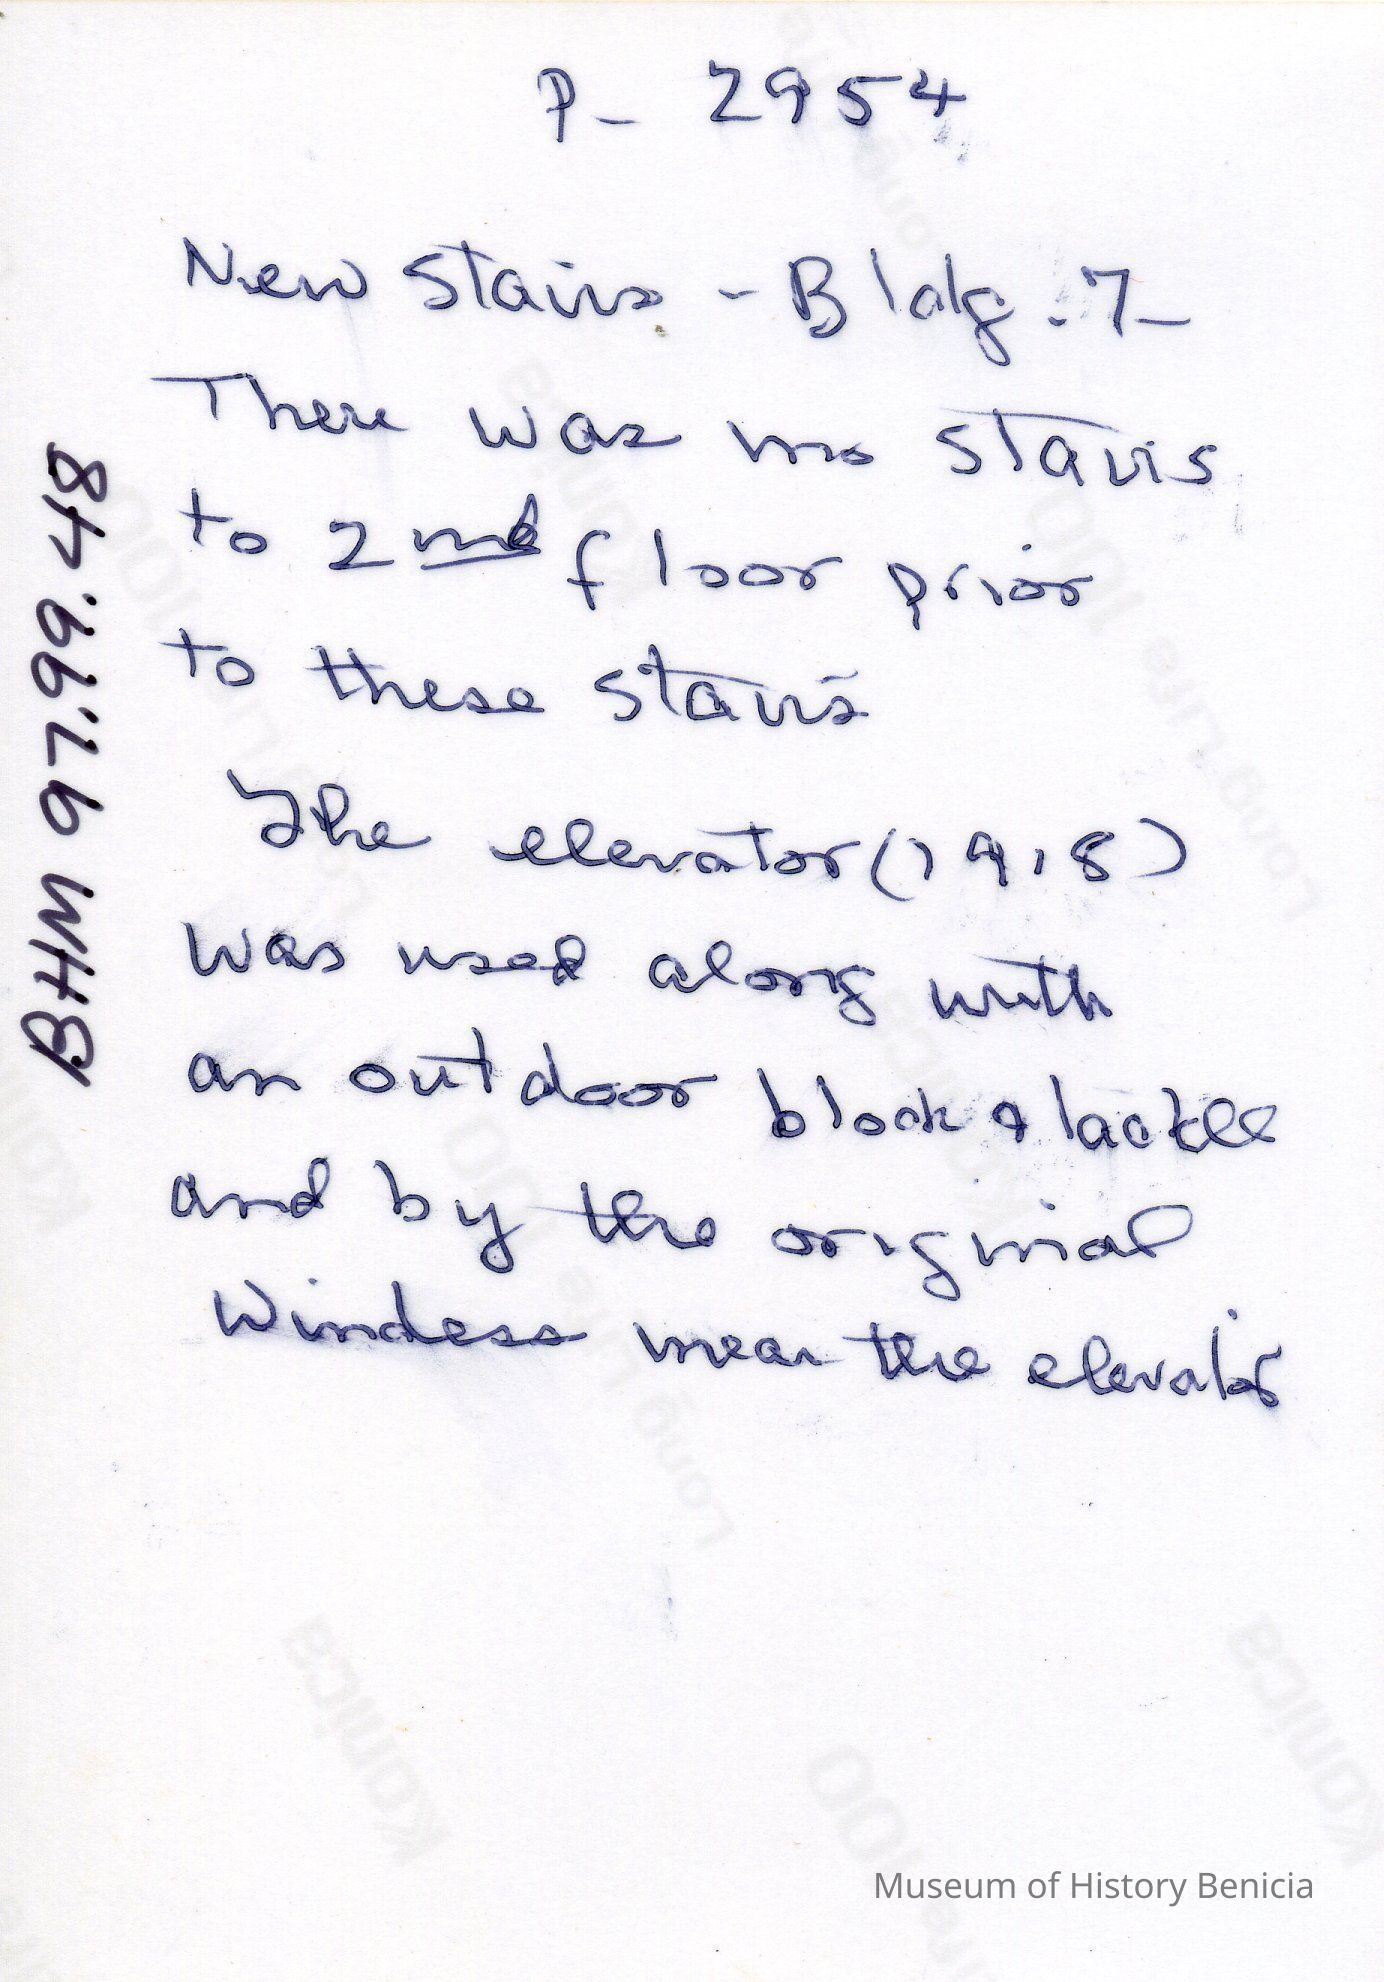 P- 2954
New Stairs - Bldg. 7-
There was no stairs
to 2nd floor prior
to these stairs
The elevator (1918)
was used along with
an outdoor block & tackle
and by the original
Windess near the elevator
BHM 97.99.48
Museum of History Benicia